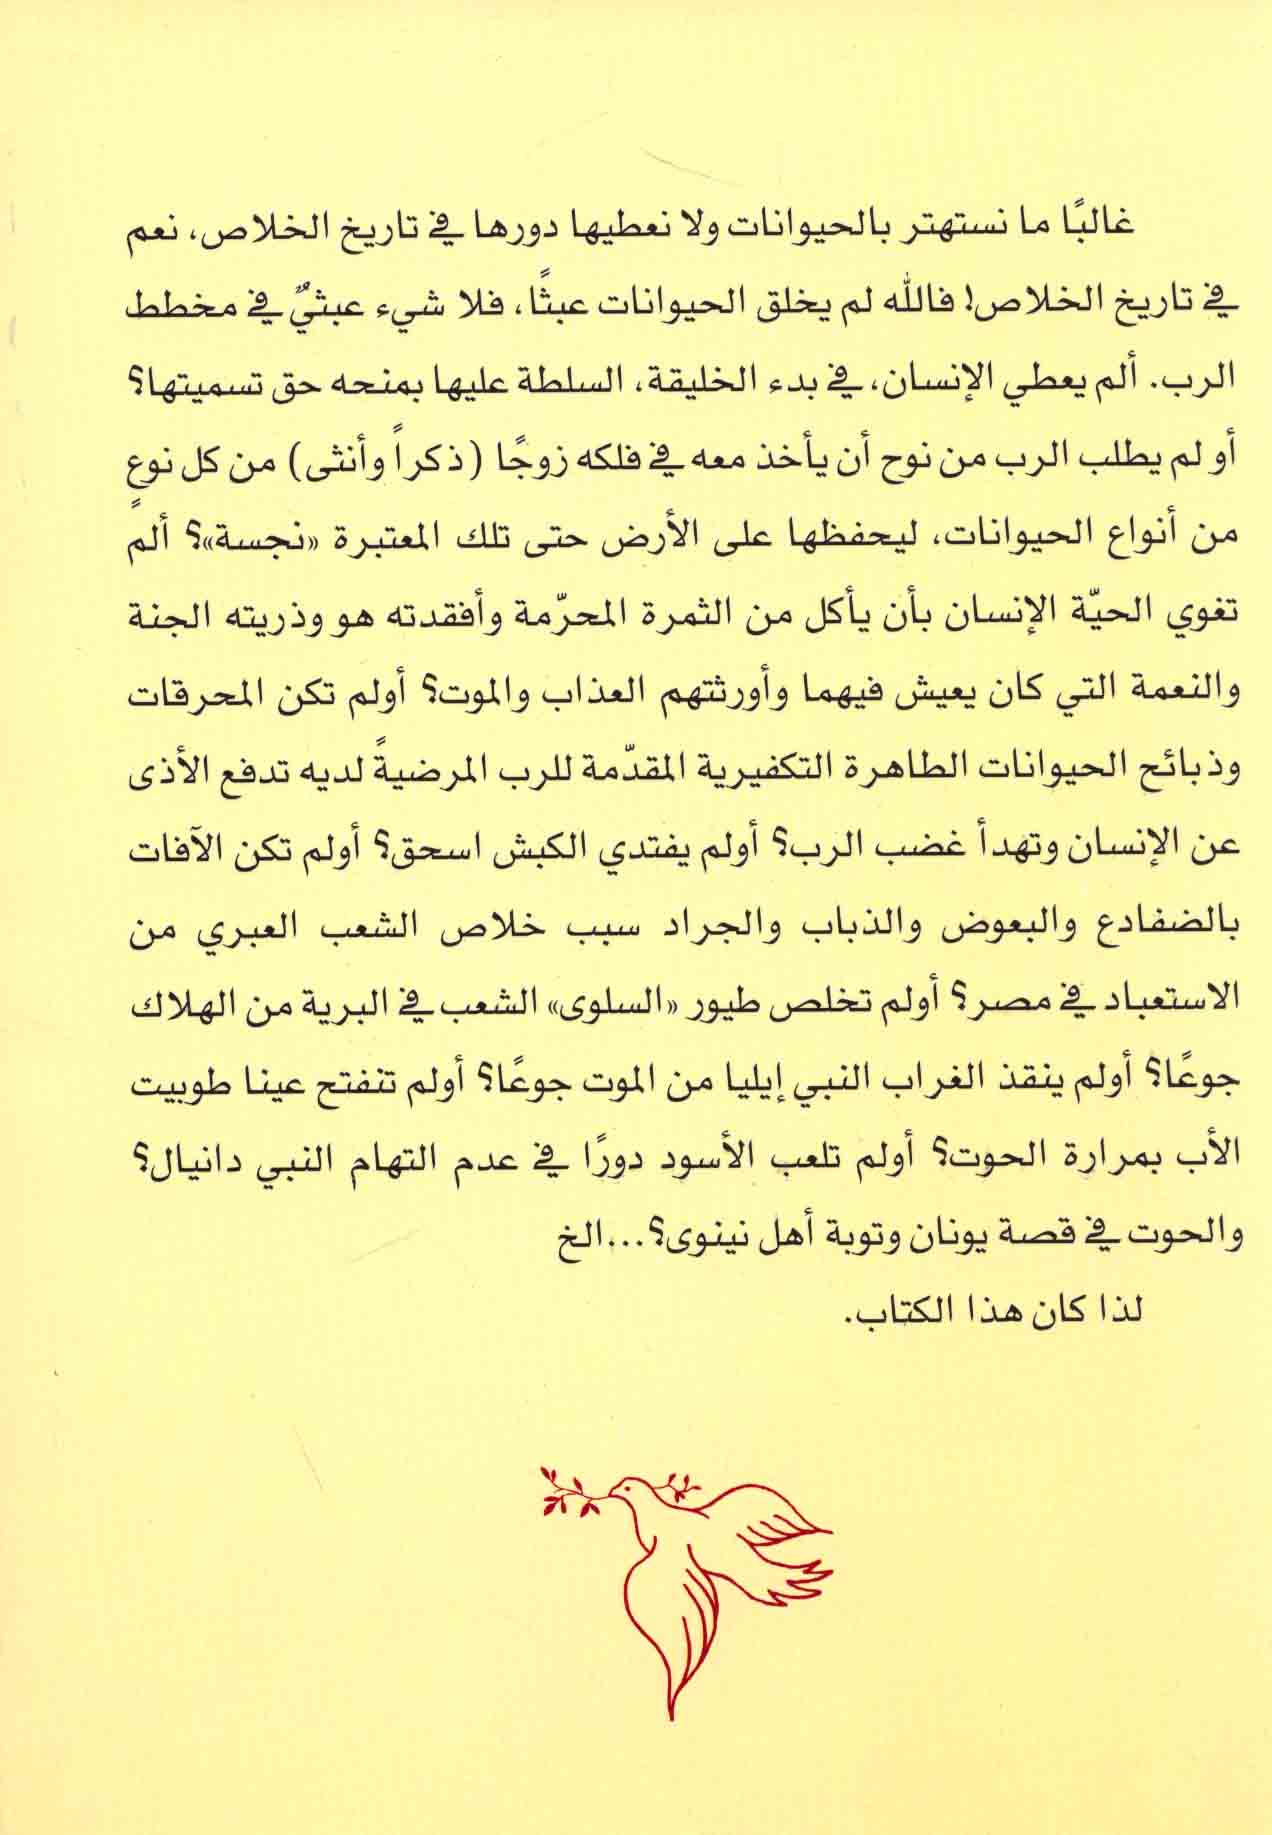 غالبًا ما نستهتر بالحيوانات ولا نعطيها دورها في تاريخ الخلاص، نعم
في تاريخ الخلاص! فالله لم يخلق الحيوانات عبثًا، فلا شيء عبثيٌ في مخطط
الرب. ألم يعطي الإنسان، في بدء الخليقة، السلطة عليها بمنحه حق تسميتها؟
أو لم يطلب الرب من نوح أن يأخذ معه في فلكه زوجًا (ذكراً وأنثى) من كل نوعٍ
من أنواع الحيوانات، ليحفظها على الأرض حتى تلك المعتبرة «نجسة»؟ ألم
تغوي الحيّة الإنسان بأن يأكل من الثمرة المحرّمة وأفقدته هو وذريته الجنة
والنعمة التي كان يعيش فيهما وأورثتهم العذاب والموت؟ أولم تكن المحرقات
وذبائح الحيوانات الطاهرة التكفيرية المقدّمة للرب المرضيةً لديه تدفع الأذى
عن الإنسان وتهدأ غضب الرب؟ أولم يفتدي الكبش اسحق؟ أولم تكن الآفات
بالضفادع والبعوض والذباب والجراد سبب خلاص الشعب العبري من
الاستعباد في مصر؟ أولم تخلص طيور «السلوى» الشعب في البرية من الهلاك
جوعًا؟ أولم ينقذ الغراب النبي إيليا من الموت جوعًا؟ أولم تنفتح عينا طوبيت
الأب بمرارة الحوت؟ أولم تلعب الأسود دورًا في عدم التهام النبي دانيال؟
والحوت في قصة يونان وتوبة أهل نينوى؟...الخ
لذا كان هذا الكتاب.